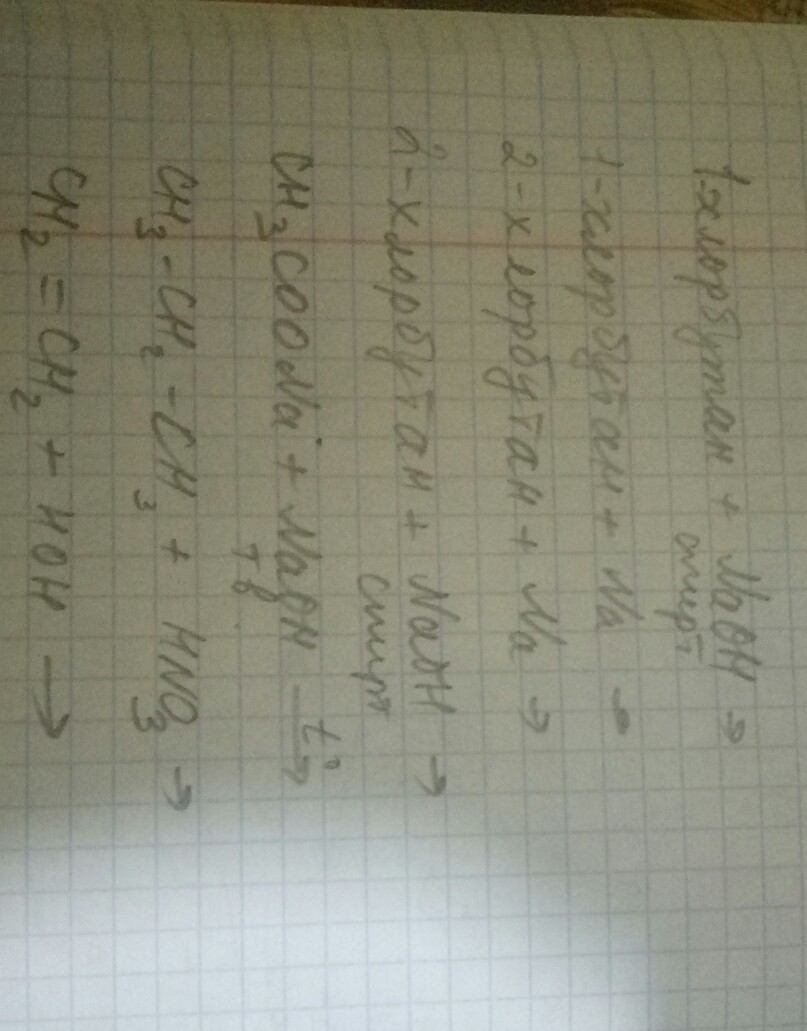 1-хлорбутан + NaOH →
спирт.
1-хлорбутан + Na →
2-хлорбутан + Na →
2-хлорбутан + NaOH →
спирт
CH₃COONa + NaOH t° →
тв.
CH₃-CH₂-CH₃ + HNO₃ →
CH₂=CH₂ + HOH →